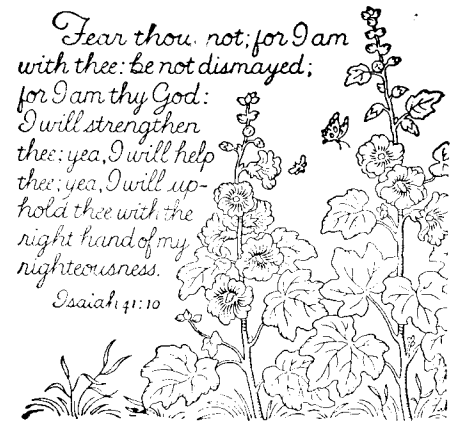 Fear thou not; for I am
with thee: be not dismayed;
for I am thy God:
I will strengthen
thee: yea, I will help
thee; yea, I will up-
hold thee with the
right hand of my
righteousness.
Isaiah 41:10